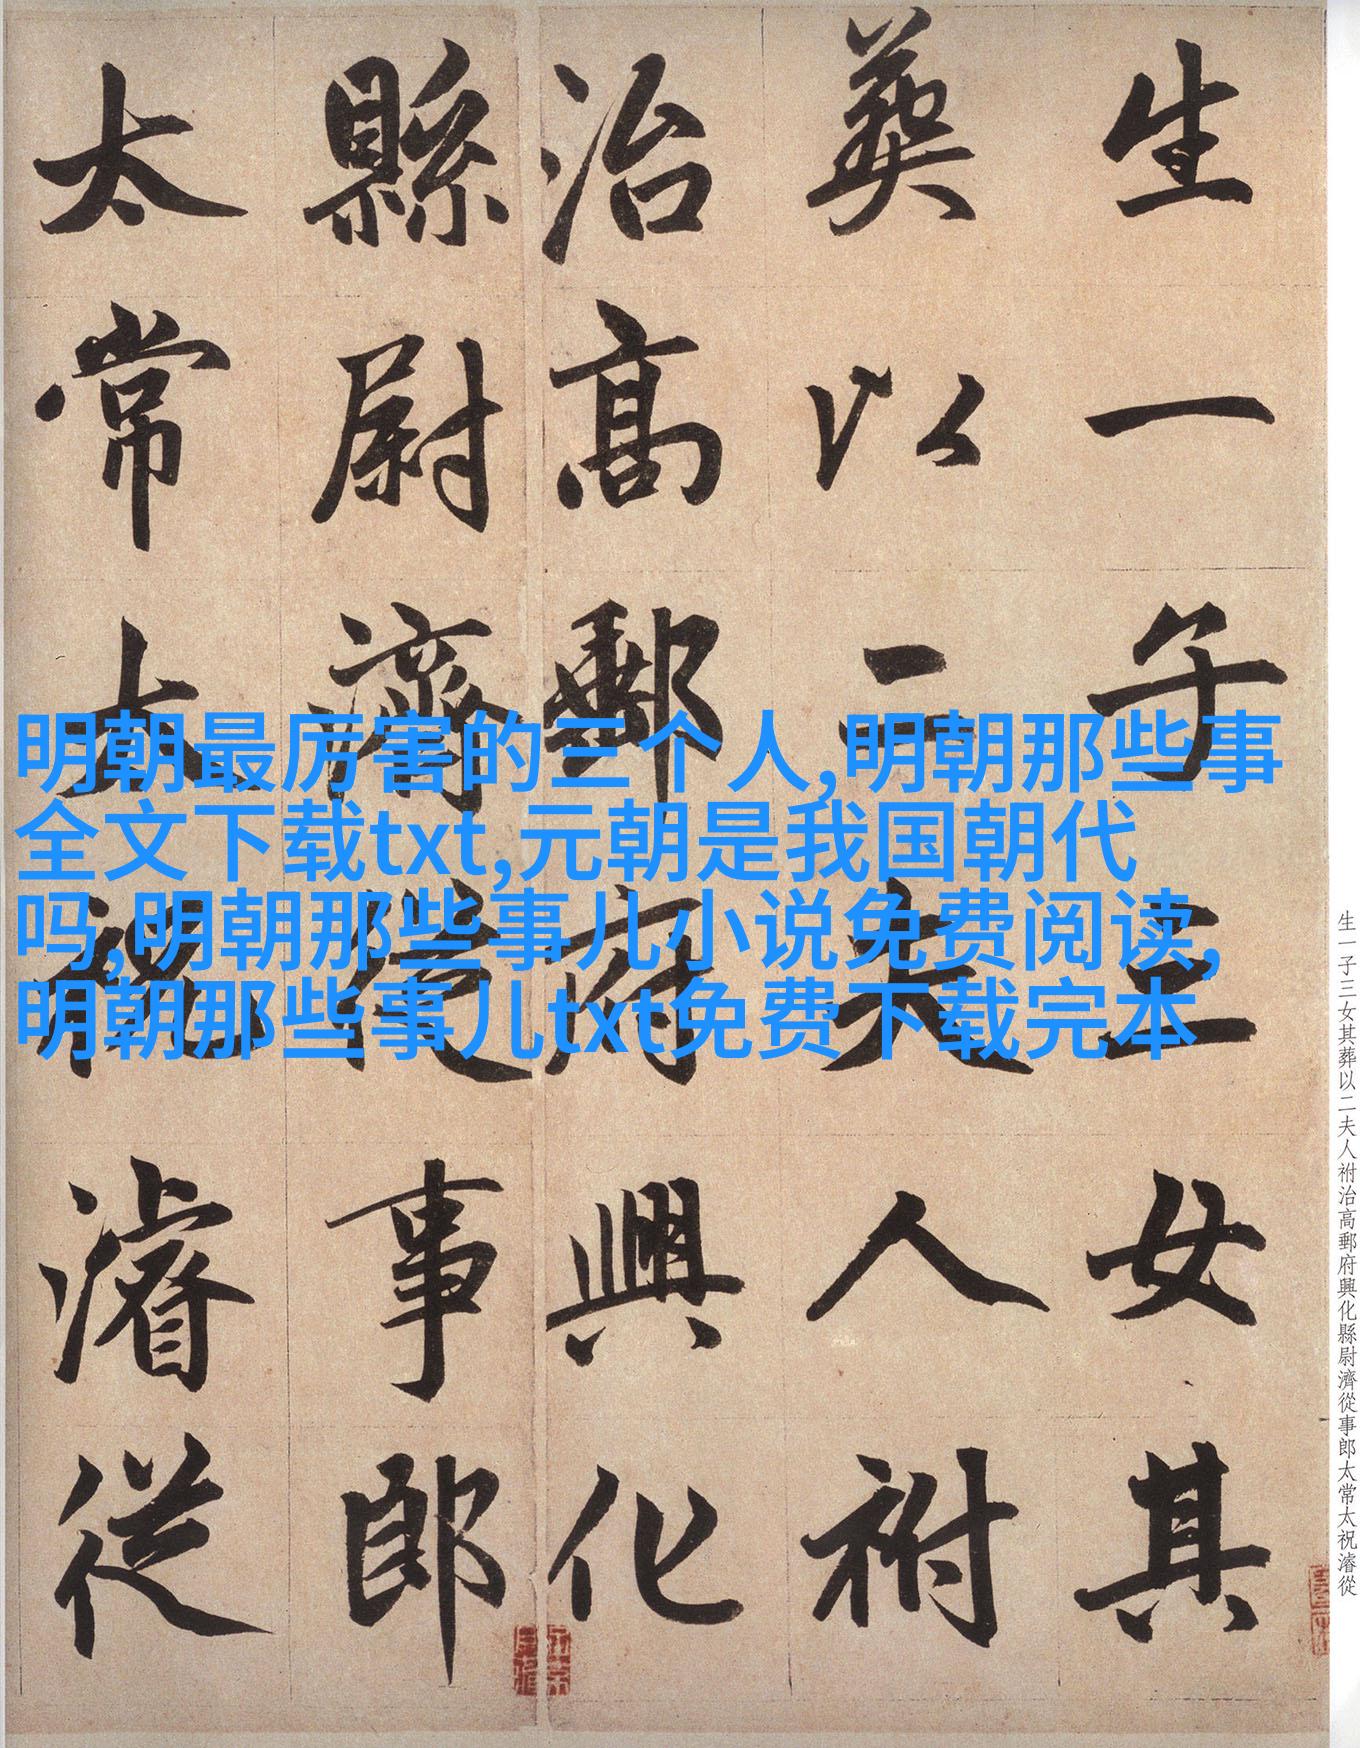 生一子三女其
葬以二夫人祔
治高郵府興化
縣尉濟從事郎
太常太祝濬從
明朝最厉害的三个人,明朝那些事
全文下载txt,元朝是我国朝代
吗,明朝那些事儿小说免费阅读,
明朝那些事儿txt免费下载完本
生一子三女其葬以二夫人祔治高郵府興化縣尉濟從事郎太常太祝濬從